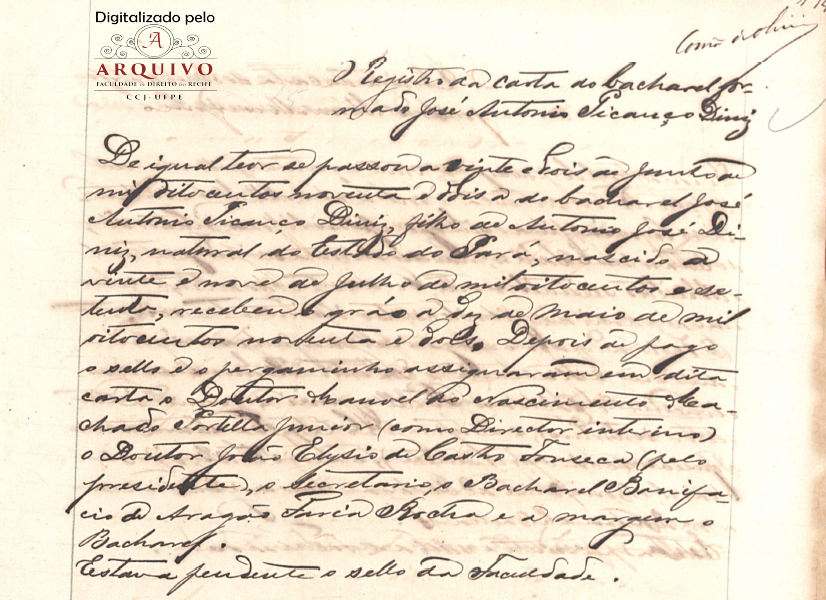 Digitalizado pelo
A
ARQUIVO
FACULDADE DE DIREITO DO RECIFE
CCJ-UFPE
Registro da carta do bacharel for-
mado José Antonio Picanço Diniz
De igual teor se passou a vinte e dois de Junho de
mil oitocentos noventa e dois a do bacharel José
Antonio Picanço Diniz, filho de Antonio José Di-
niz, natural do Estado do Pará, nascido a
vinte e nove de Julho de mil oitocentos e se-
tenta, recebeu o gráo a dez de Maio de mil
oitocentos noventa e dois. Depois de pago
o sello e o pergaminho assignaram em dita
carta o Doutor Manoel do Nascimento Ma-
chado Portella Junior (como Director interino)
o Doutor João Elysio de Castro Fonseca (pelo
presidente), o secretario, o Bacharel Bonifa-
cio de Aragão Faria Rocha e a margem o
Bacharel.
Estava pendente o sello da Faculdade.